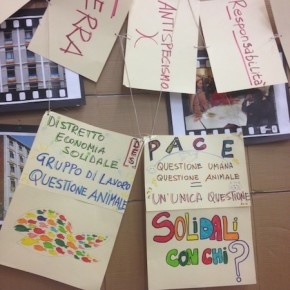 TERRA
ANTISPECISMO
Responsabilità
DISTRETTO
ECONOMIA
SOLIDALE
GRUPPO DI LAVORO
QUESTIONE ANIMALE
PACE
QUESTIONE UMANA
=
QUESTIONE ANIMALE
UN'UNICA QUESTIONE
SOLIDALI
CON CHI?